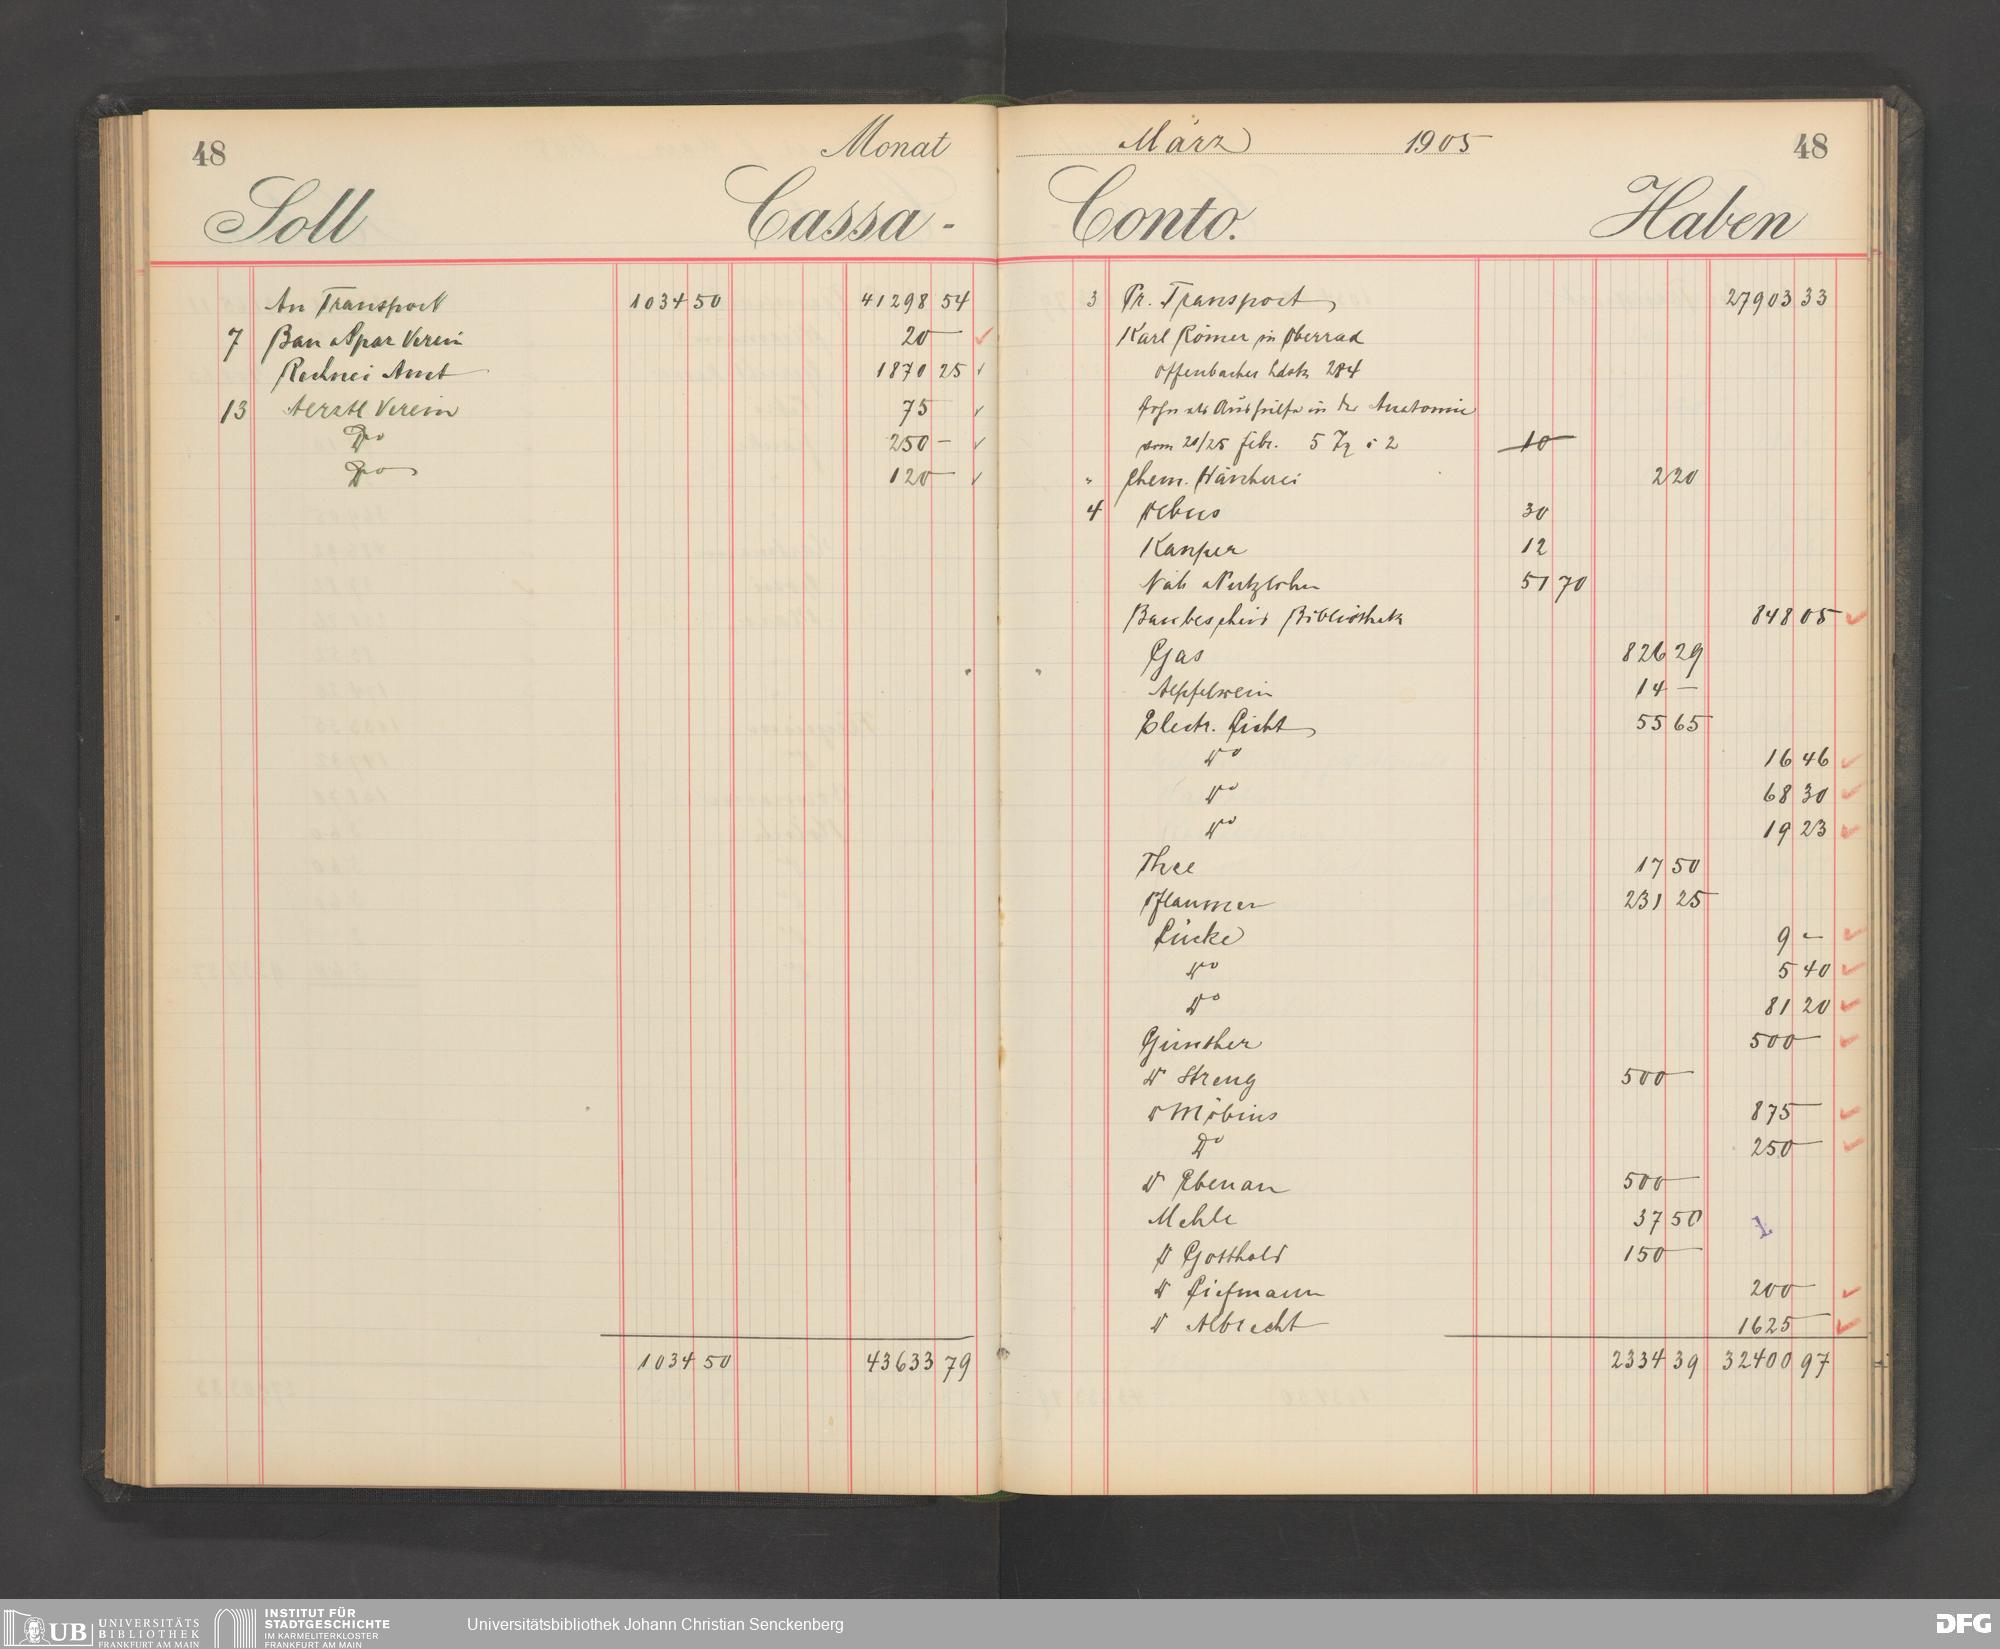 48
Monat
Soll Cassa-
An Transport 1034 50 41298 54
7 Bau & Spar Verein 20 —
Rechnei Amt 1870 25
13 Aerztl Verein 75
Do 250 —
Do 120 —
1034 50 43633 79
März 1905 48
Conto. Haben
3 Pr. Transport 27903 33
Karl Römer in Oberrad
Offenbacher Ldstr 284
Lohn als Aushülfe in der Anatomie
vom 20/25 Febr. 5 Tg à 2 10
" Chem. Wäscherei 2 20
4 Debus 30
Kamper 12
Näh & Putzlohn 51 70
Baubescheid Bibliothek 848 05
Gas 826 29
Aepfelwein 14 —
Electr. Licht 55 65
Do 16 46
Do 68 30
Do 19 23
Thee 17 50
Pflaumer 231 25
Lücke 9 —
Do 5 40
Do 81 20
Günther 500 —
Dr Streng 500 —
Dr Möbius 875 —
Do 250 —
Dr Ebenau 500 —
Mehle 37 50
1
Dr Gotthold 150 —
Dr Liefmann 200 —
Dr Albrecht 1625 —
2334 39 32400 97
UB UNIVERSITÄTS
BIBLIOTHEK
FRANKFURT AM MAIN
INSTITUT FÜR
STADTGESCHICHTE
IM KARMELITERKLOSTER
FRANKFURT AM MAIN
Universitätsbibliothek Johann Christian Senckenberg
DFG